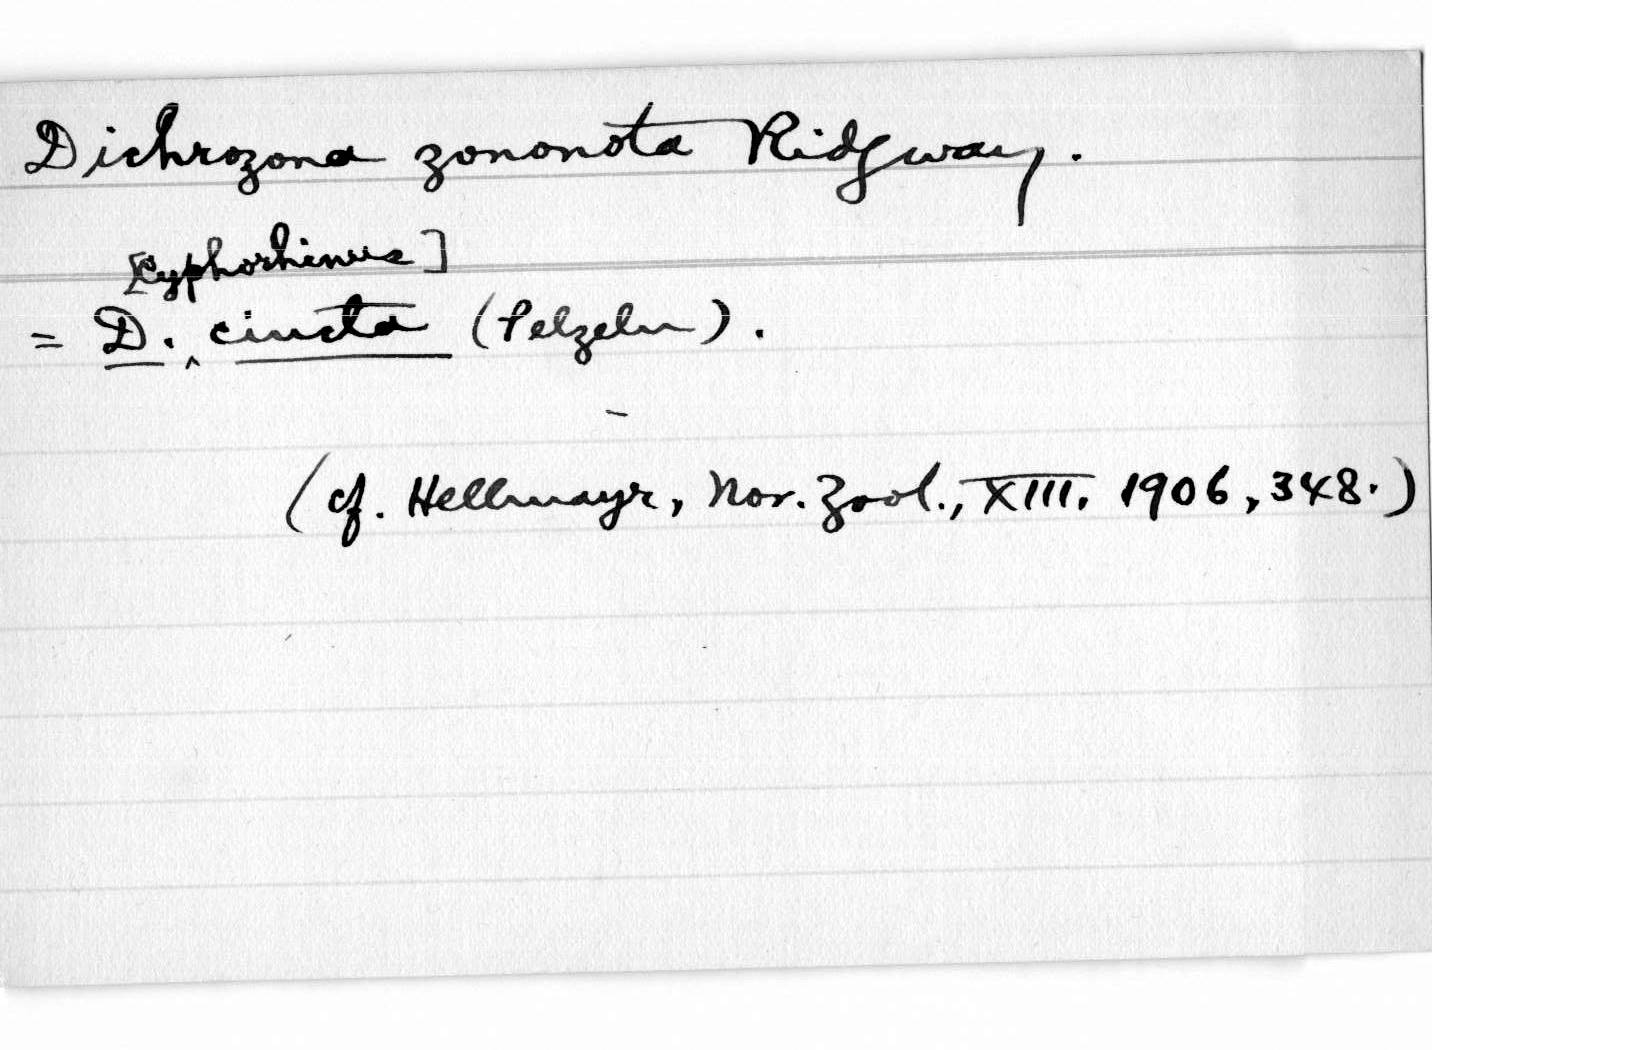 Dichrozona zononota Ridgway.
[Cyphorhinus]
= D. ‸ cincta (Pelzeln).
(cf. Hellmayr, Nov. Zool., XIII. 1906, 348.)